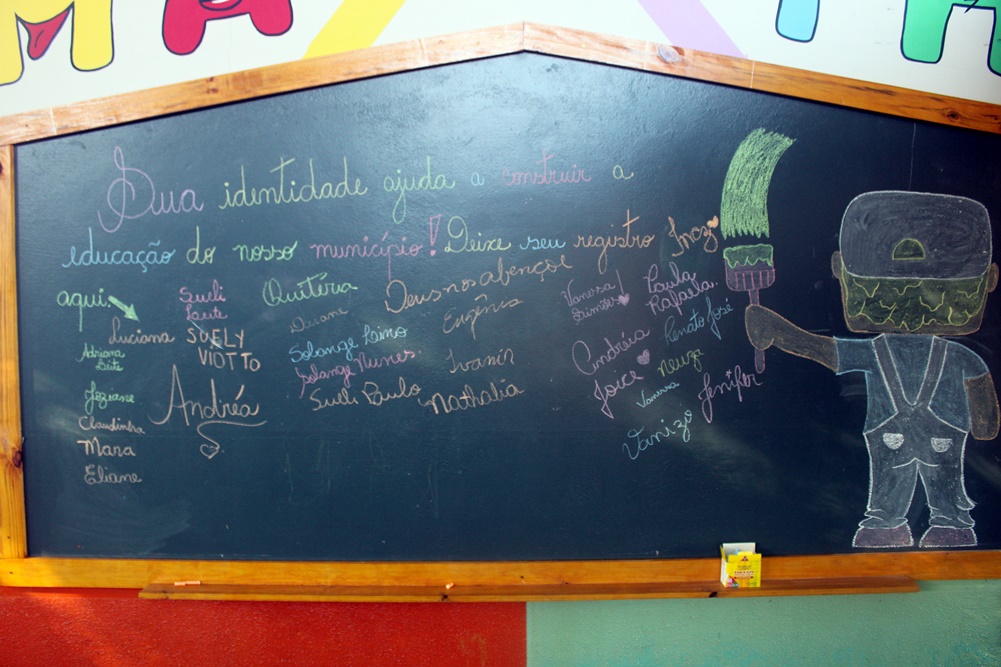 Sua identidade ajuda a construir a
educação do nosso município! Deixe seu registro
aqui.
Luciana
Adriana
Leite
Joziane
Claudinha
Mara
Eliane
Sueli
Leite
SUELY
VIOTTO
Andréa
Quitéria
Deusnosabençoe
Eugênia
Solange Laino
Solange Nunes.
Sueli Paulo
Ivanir
Nathalia
Vanessa
Paula
Rafaela
Andréia
Joice
Renato José
Neuza
Vanessa
Jenifer